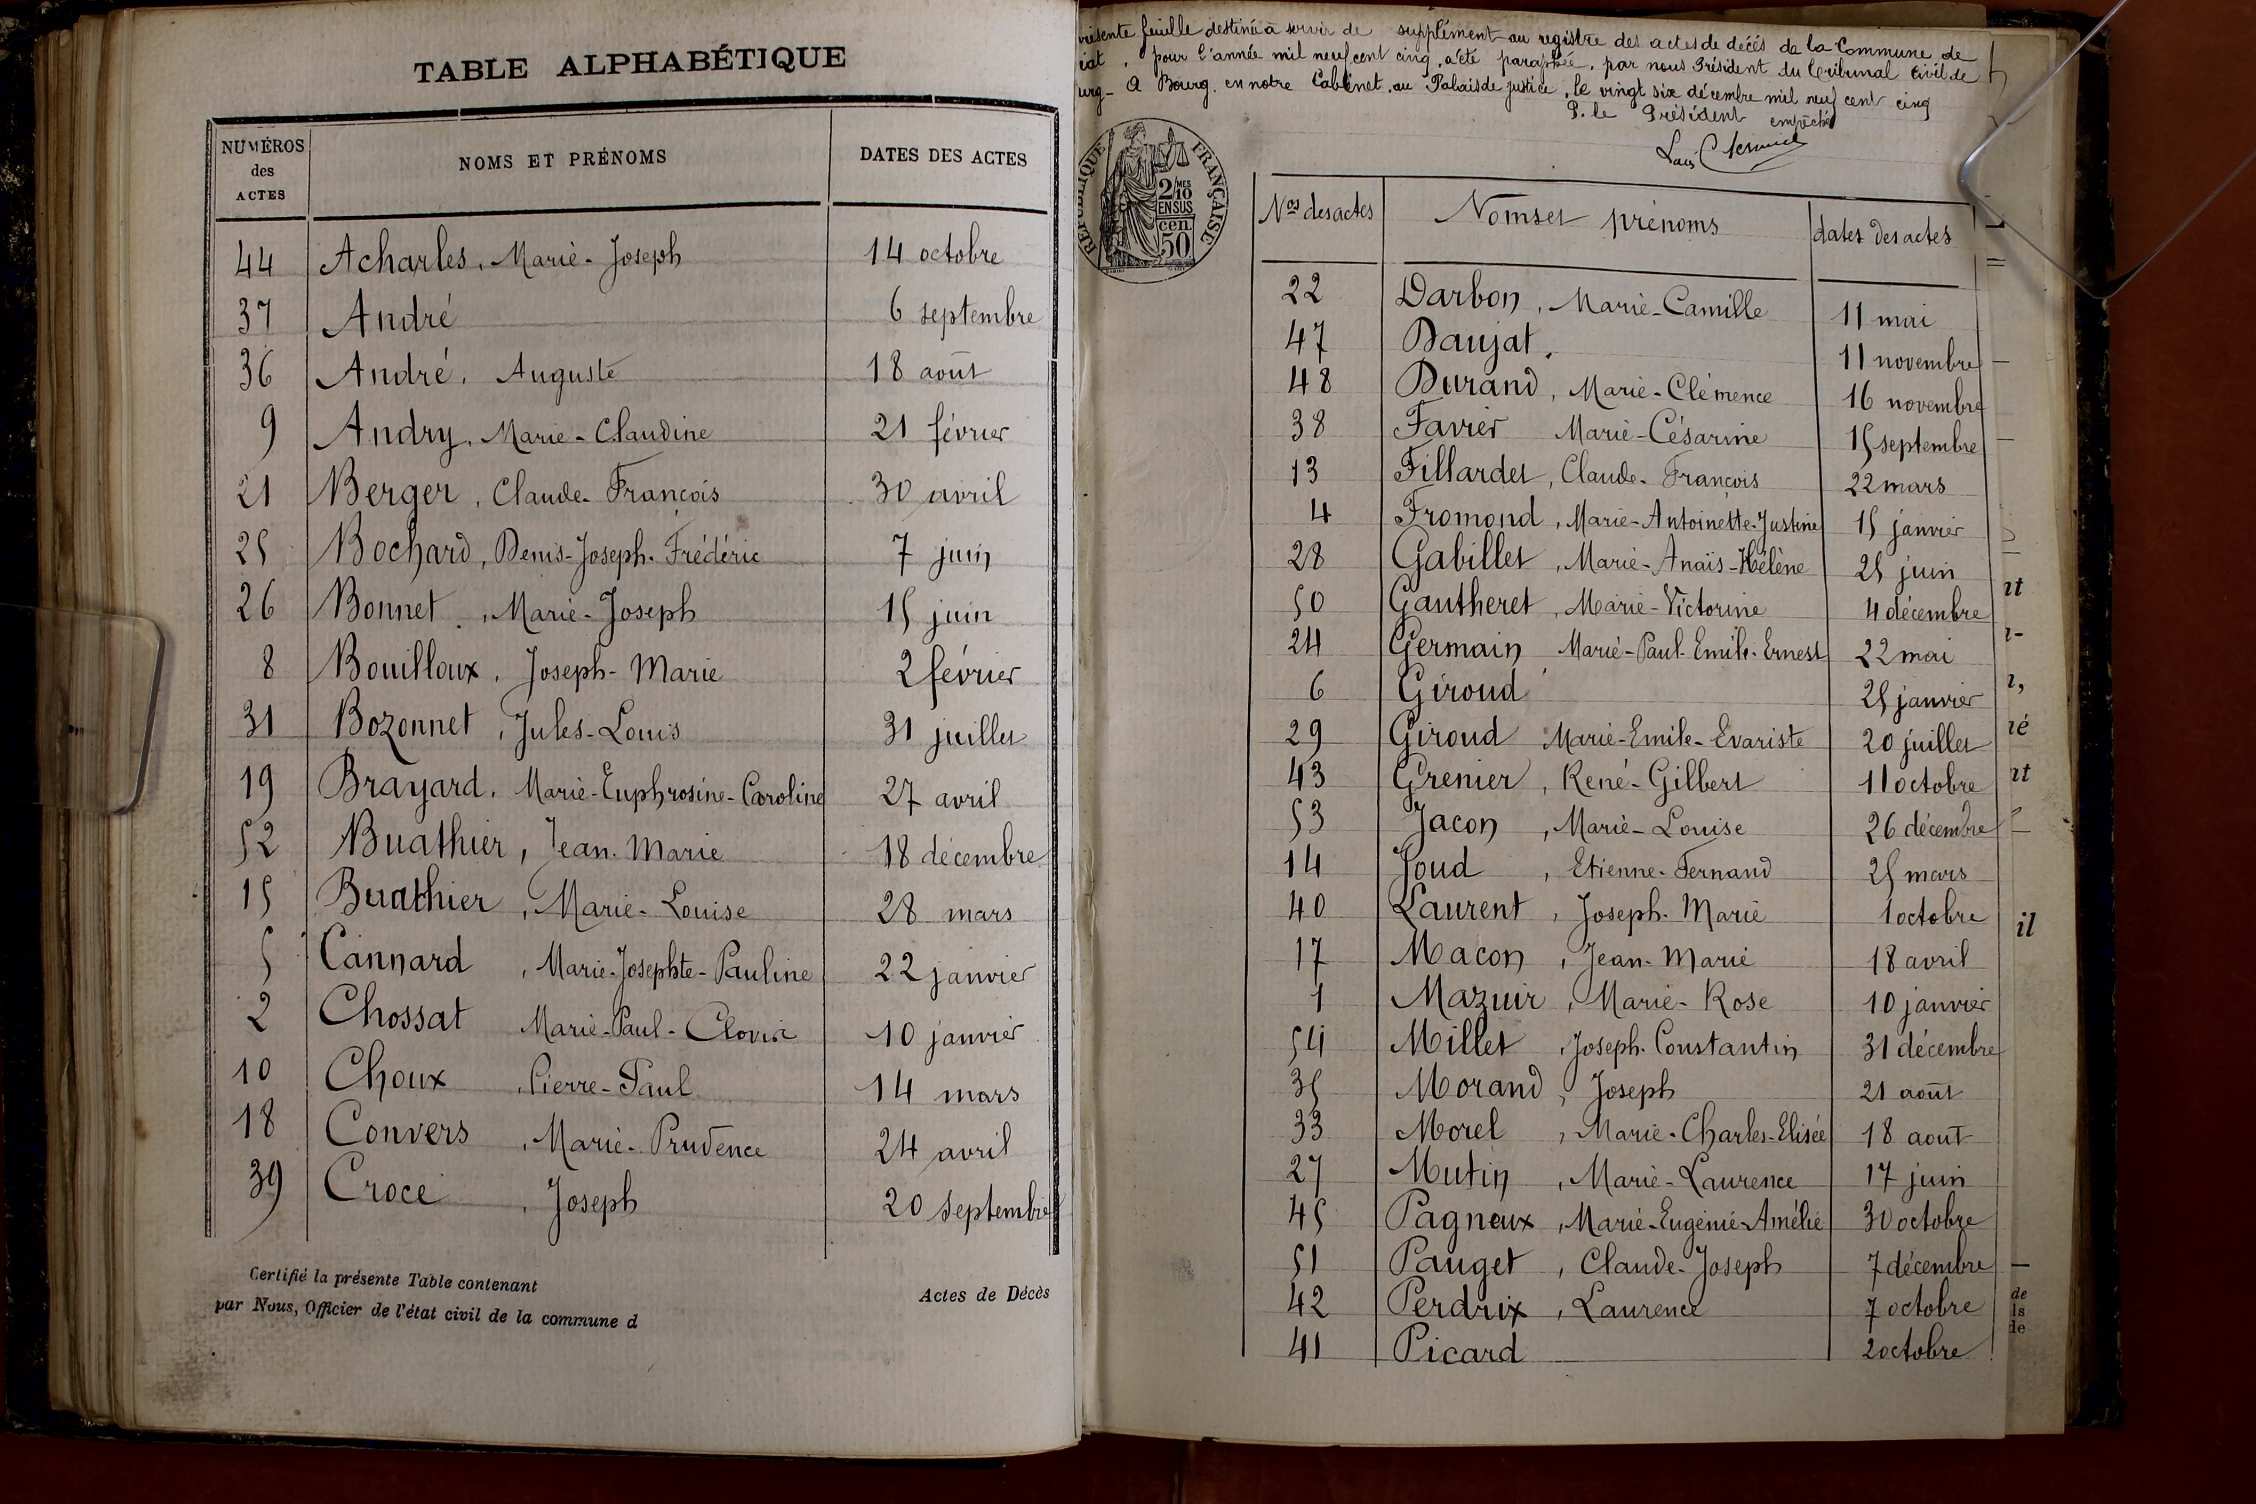 TABLE ALPHABÉTIQUE
NUMÉROS des ACTES NOMS ET PRÉNOMS DATES DES ACTES
44 Acharles, Marie-Joseph 14 octobre
37 André 6 septembre
36 André, Auguste 18 août
9 Andry, Marie-Claudine 21 février
21 Berger, Claude-François 30 avril
25 Bochard, Denis-Joseph-Frédéric 7 juin
26 Bonnet, Marie-Joseph 15 juin
8 Bouilloux, Joseph-Marie 2 février
31 Bozonnet, Jules-Louis 31 juillet
19 Brayard, Marie-Euphrosine-Caroline 27 avril
52 Buathier, Jean-Marie 18 décembre
15 Buathier, Marie-Louise 28 mars
5 Cannard, Marie-Josephte-Pauline 22 janvier
2 Chossat Marie-Paul-Clovis 10 janvier
10 Choux, Pierre-Paul 14 mars
18 Convers, Marie-Prudence 24 avril
39 Croce, Joseph 20 septembre
Certifié la présente Table contenant Actes de Décès
par Nous, Officier de l'état civil de la commune d
présente feuille destinée à servir de supplément au registre des actes de décès de la Commune de
iat, pour l'année mil neuf cent cinq, a été paraphée, par nous Président du Tribunal Civil de
urg - A Bourg, en notre Cabinet, au Palais de justice, le vingt six décembre mil neuf cent cinq
P. le Président empêché
RÉPUBLIQUE FRANÇAISE
2/10 MES
EN SUS
50 cen
Nos des actes Noms et prénoms dates des actes
22 Darbon, Marie-Camille 11 mai
47 Daujat, 11 novembre
48 Durand, Marie-Clémence 16 novembre
38 Favier Marie-Césarine 15 septembre
13 Fillardet, Claude-François 22 mars
4 Fromond, Marie-Antoinette-Justine 15 janvier
28 Gabillet, Marie-Anaïs-Hélène 25 juin
50 Gautheret, Marie-Victorine 4 décembre
24 Germain Marie-Paul-Emile-Ernest 22 mai
6 Giroud 25 janvier
29 Giroud Marie-Emile-Evariste 20 juillet
43 Grenier, René-Gilbert 11 octobre
53 Jacon, Marie-Louise 26 décembre
14 Joud, Etienne-Fernand 25 mars
40 Laurent, Joseph-Marie 1 octobre
17 Macon, Jean-Marie 18 avril
1 Mazuir, Marie-Rose 10 janvier
54 Millet, Joseph-Constantin 31 décembre
35 Morand, Joseph 21 août
33 Morel, Marie-Charles-Elisée 18 août
27 Mutin, Marie-Laurence 17 juin
45 Pagneux, Marie-Eugénie-Amélie 30 octobre
51 Pauget, Claude-Joseph 7 décembre
42 Perdrix, Laurence 7 octobre
41 Picard 2 octobre